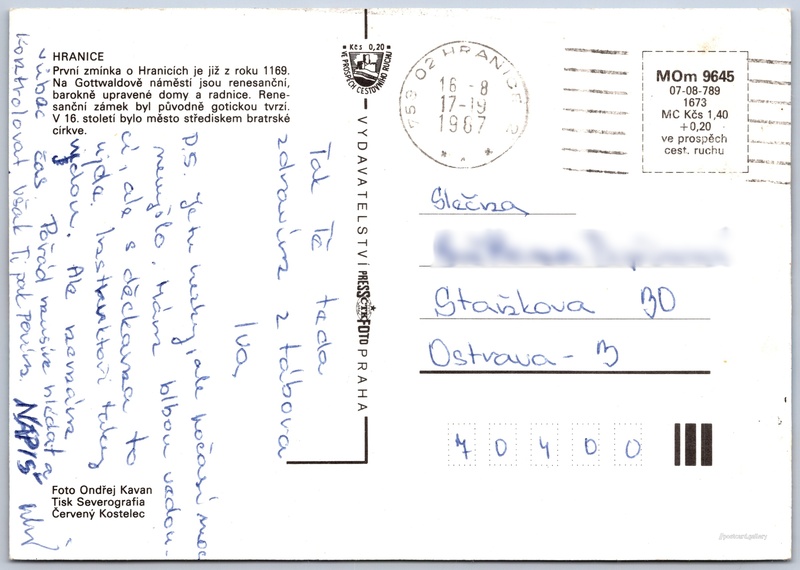 HRANICE
První zmínka o Hranicích je již z roku 1169.
Na Gottwaldově náměstí jsou renesanční,
barokně upravené domy a radnice. Rene-
sanční zámek byl původně gotickou tvrzí.
V 16. století bylo město střediskem bratrské
církve.
Kčs 0,20
VE PROSPĚCH CESTOVNÍHO RUCHU
753 02 HRANICE 2
16 -8
17-19
1987
MOm 9645
07-08-789
1673
MC Kčs 1,40
+0,20
ve prospěch
cest. ruchu
VYDAVATELSTVÍ PRESSFOTO PRAHA
ČTK
Slečna
Staškova 30
Ostrava - 3
70400
Tak Tě teda
zdravím z tábora
Iva,
P.S. Je tu hezky, ale počasí moc
nemyslo. Mám blbou vedou-
cí, ale s děckama to
ujde. Instruktoři taky
ujdou. Ale nemám
vůbec čas Pořád musím hlídat a
kontrolovat však Ti pak povím. NAPIŠ
Foto Ondřej Kavan
Tisk Severografia
Červený Kostelec
postcard.gallery